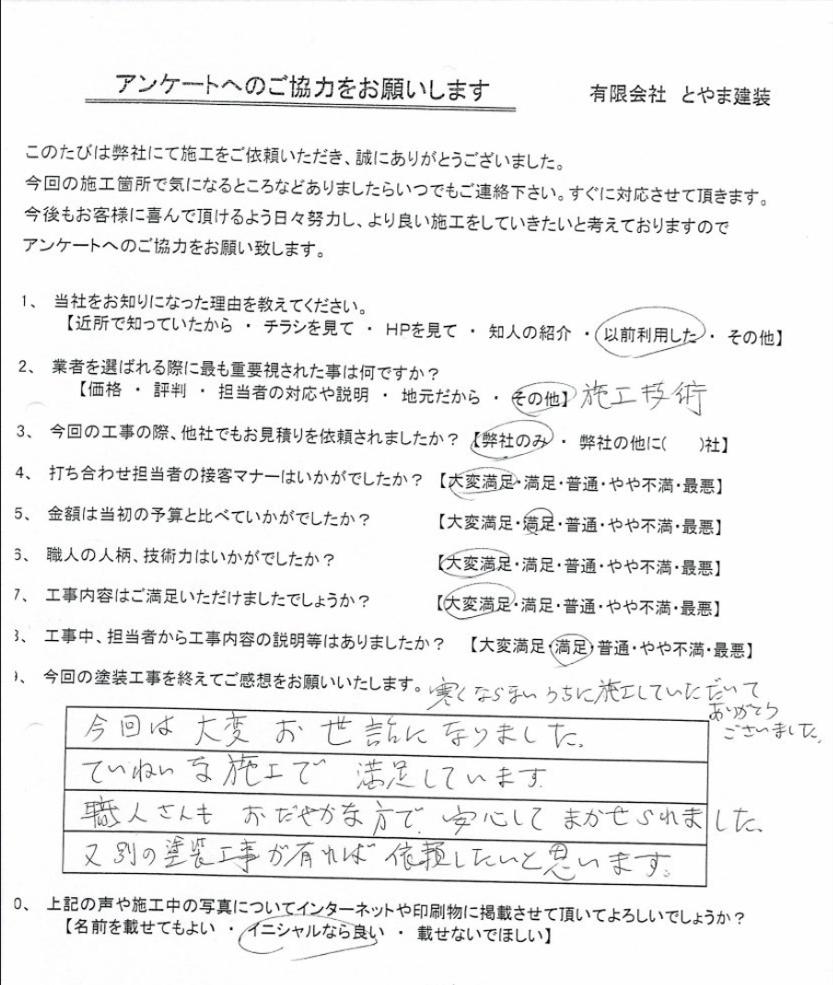 アンケートへのご協力をお願いします
有限会社　とやま建装
このたびは弊社にて施工をご依頼いただき、誠にありがとうございました。
今回の施工箇所で気になるところなどありましたらいつでもご連絡下さい。すぐに対応させて頂きます。
今後もお客様に喜んで頂けるよう日々努力し、より良い施工をしていきたいと考えておりますので
アンケートへのご協力をお願い致します。
1、 当社をお知りになった理由を教えてください。
【近所で知っていたから ・ チラシを見て ・ HPを見て ・ 知人の紹介 ・ 以前利用した ・ その他】
2、 業者を選ばれる際に最も重要視された事は何ですか？
【価格 ・ 評判 ・ 担当者の対応や説明 ・ 地元だから ・ その他】 施工技術
3、 今回の工事の際、他社でもお見積りを依頼されましたか？ 【弊社のみ ・ 弊社の他に(　　)社】
4、 打ち合わせ担当者の接客マナーはいかがでしたか？ 【大変満足・満足・普通・やや不満・最悪】
5、 金額は当初の予算と比べていかがでしたか？ 【大変満足・満足・普通・やや不満・最悪】
6、 職人の人柄、技術力はいかがでしたか？ 【大変満足・満足・普通・やや不満・最悪】
7、 工事内容はご満足いただけましたでしょうか？ 【大変満足・満足・普通・やや不満・最悪】
8、 工事中、担当者から工事内容の説明等はありましたか？ 【大変満足・満足・普通・やや不満・最悪】
9、 今回の塗装工事を終えてご感想をお願いいたします。
寒くならないうちに施工していただいて
ありがとう
ございました。
今回は大変お世話になりました。
ていねいな施工で 満足しています
職人さんも おだやかな方で 安心して まかせられました。
又別の塗装工事が有れば 依頼したいと思います。
0、 上記の声や施工中の写真についてインターネットや印刷物に掲載させて頂いてよろしいでしょうか？
【名前を載せてもよい ・ イニシャルなら良い ・ 載せないでほしい】